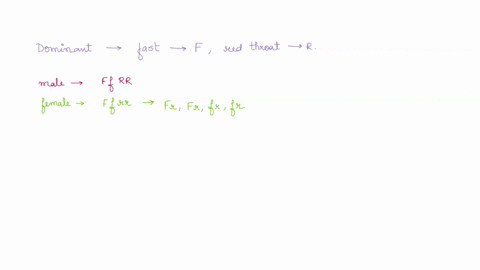 Dominant → fast → F, red throat → R.
male → Ff RR
female → Ff rr → Fr, Fr, fr, fr